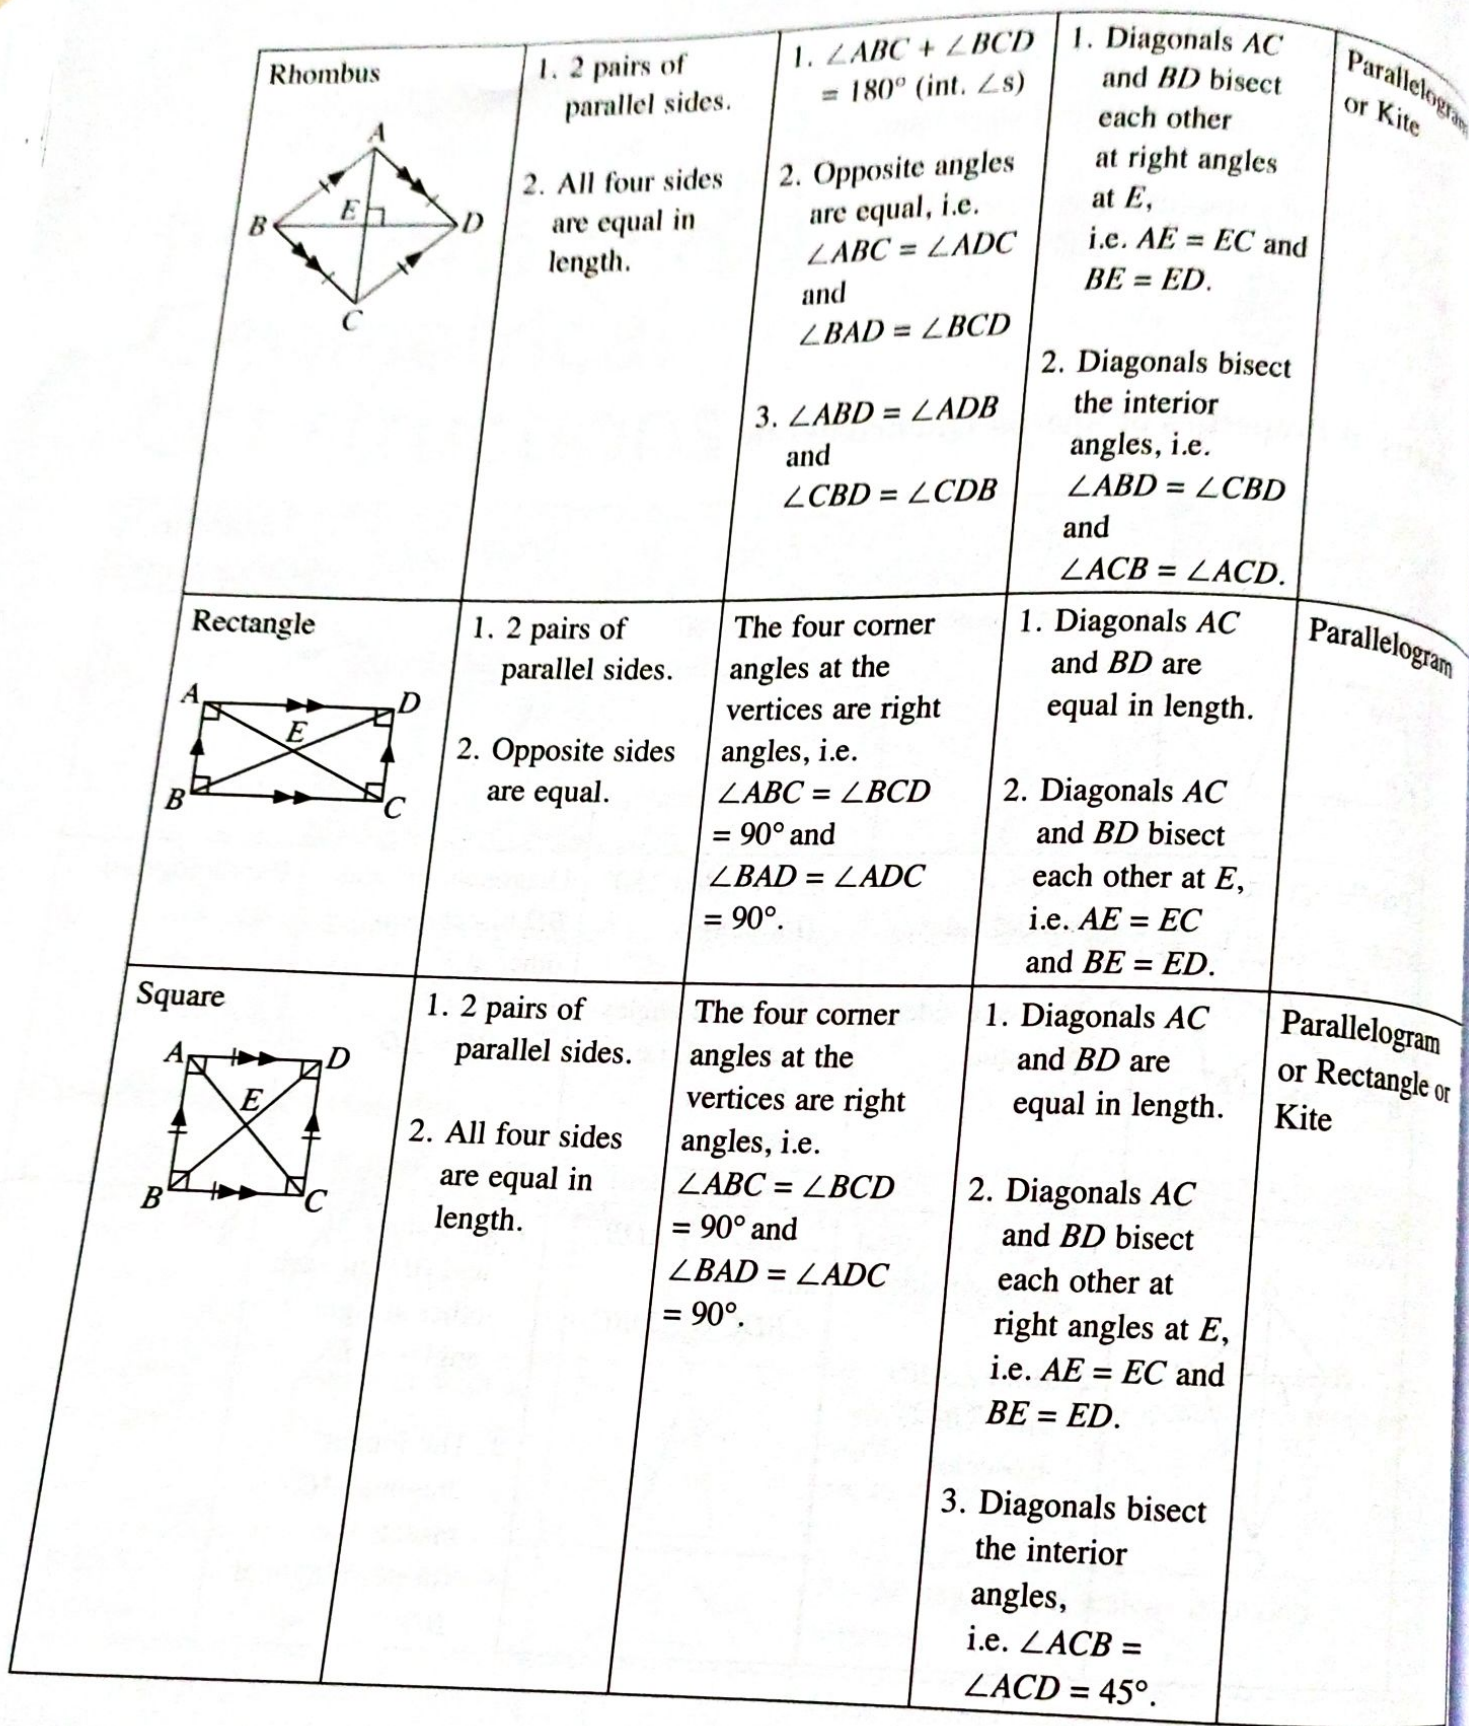 Rhombus
A
B
E
D
C
1. 2 pairs of
parallel sides.
2. All four sides
are equal in
length.
1. ∠ABC + ∠BCD
= 180° (int. ∠s)
2. Opposite angles
are equal, i.e.
∠ABC = ∠ADC
and
∠BAD = ∠BCD
3. ∠ABD = ∠ADB
and
∠CBD = ∠CDB
1. Diagonals AC
and BD bisect
each other
at right angles
at E,
i.e. AE = EC and
BE = ED.
2. Diagonals bisect
the interior
angles, i.e.
∠ABD = ∠CBD
and
∠ACB = ∠ACD.
Parallelogram
or Kite
Rectangle
A
D
E
B
C
1. 2 pairs of
parallel sides.
2. Opposite sides
are equal.
The four corner
angles at the
vertices are right
angles, i.e.
∠ABC = ∠BCD
= 90° and
∠BAD = ∠ADC
= 90°.
1. Diagonals AC
and BD are
equal in length.
2. Diagonals AC
and BD bisect
each other at E,
i.e. AE = EC
and BE = ED.
Parallelogram
Square
A
D
E
B
C
1. 2 pairs of
parallel sides.
2. All four sides
are equal in
length.
The four corner
angles at the
vertices are right
angles, i.e.
∠ABC = ∠BCD
= 90° and
∠BAD = ∠ADC
= 90°.
1. Diagonals AC
and BD are
equal in length.
2. Diagonals AC
and BD bisect
each other at
right angles at E,
i.e. AE = EC and
BE = ED.
3. Diagonals bisect
the interior
angles,
i.e. ∠ACB =
∠ACD = 45°.
Parallelogram
or Rectangle or
Kite